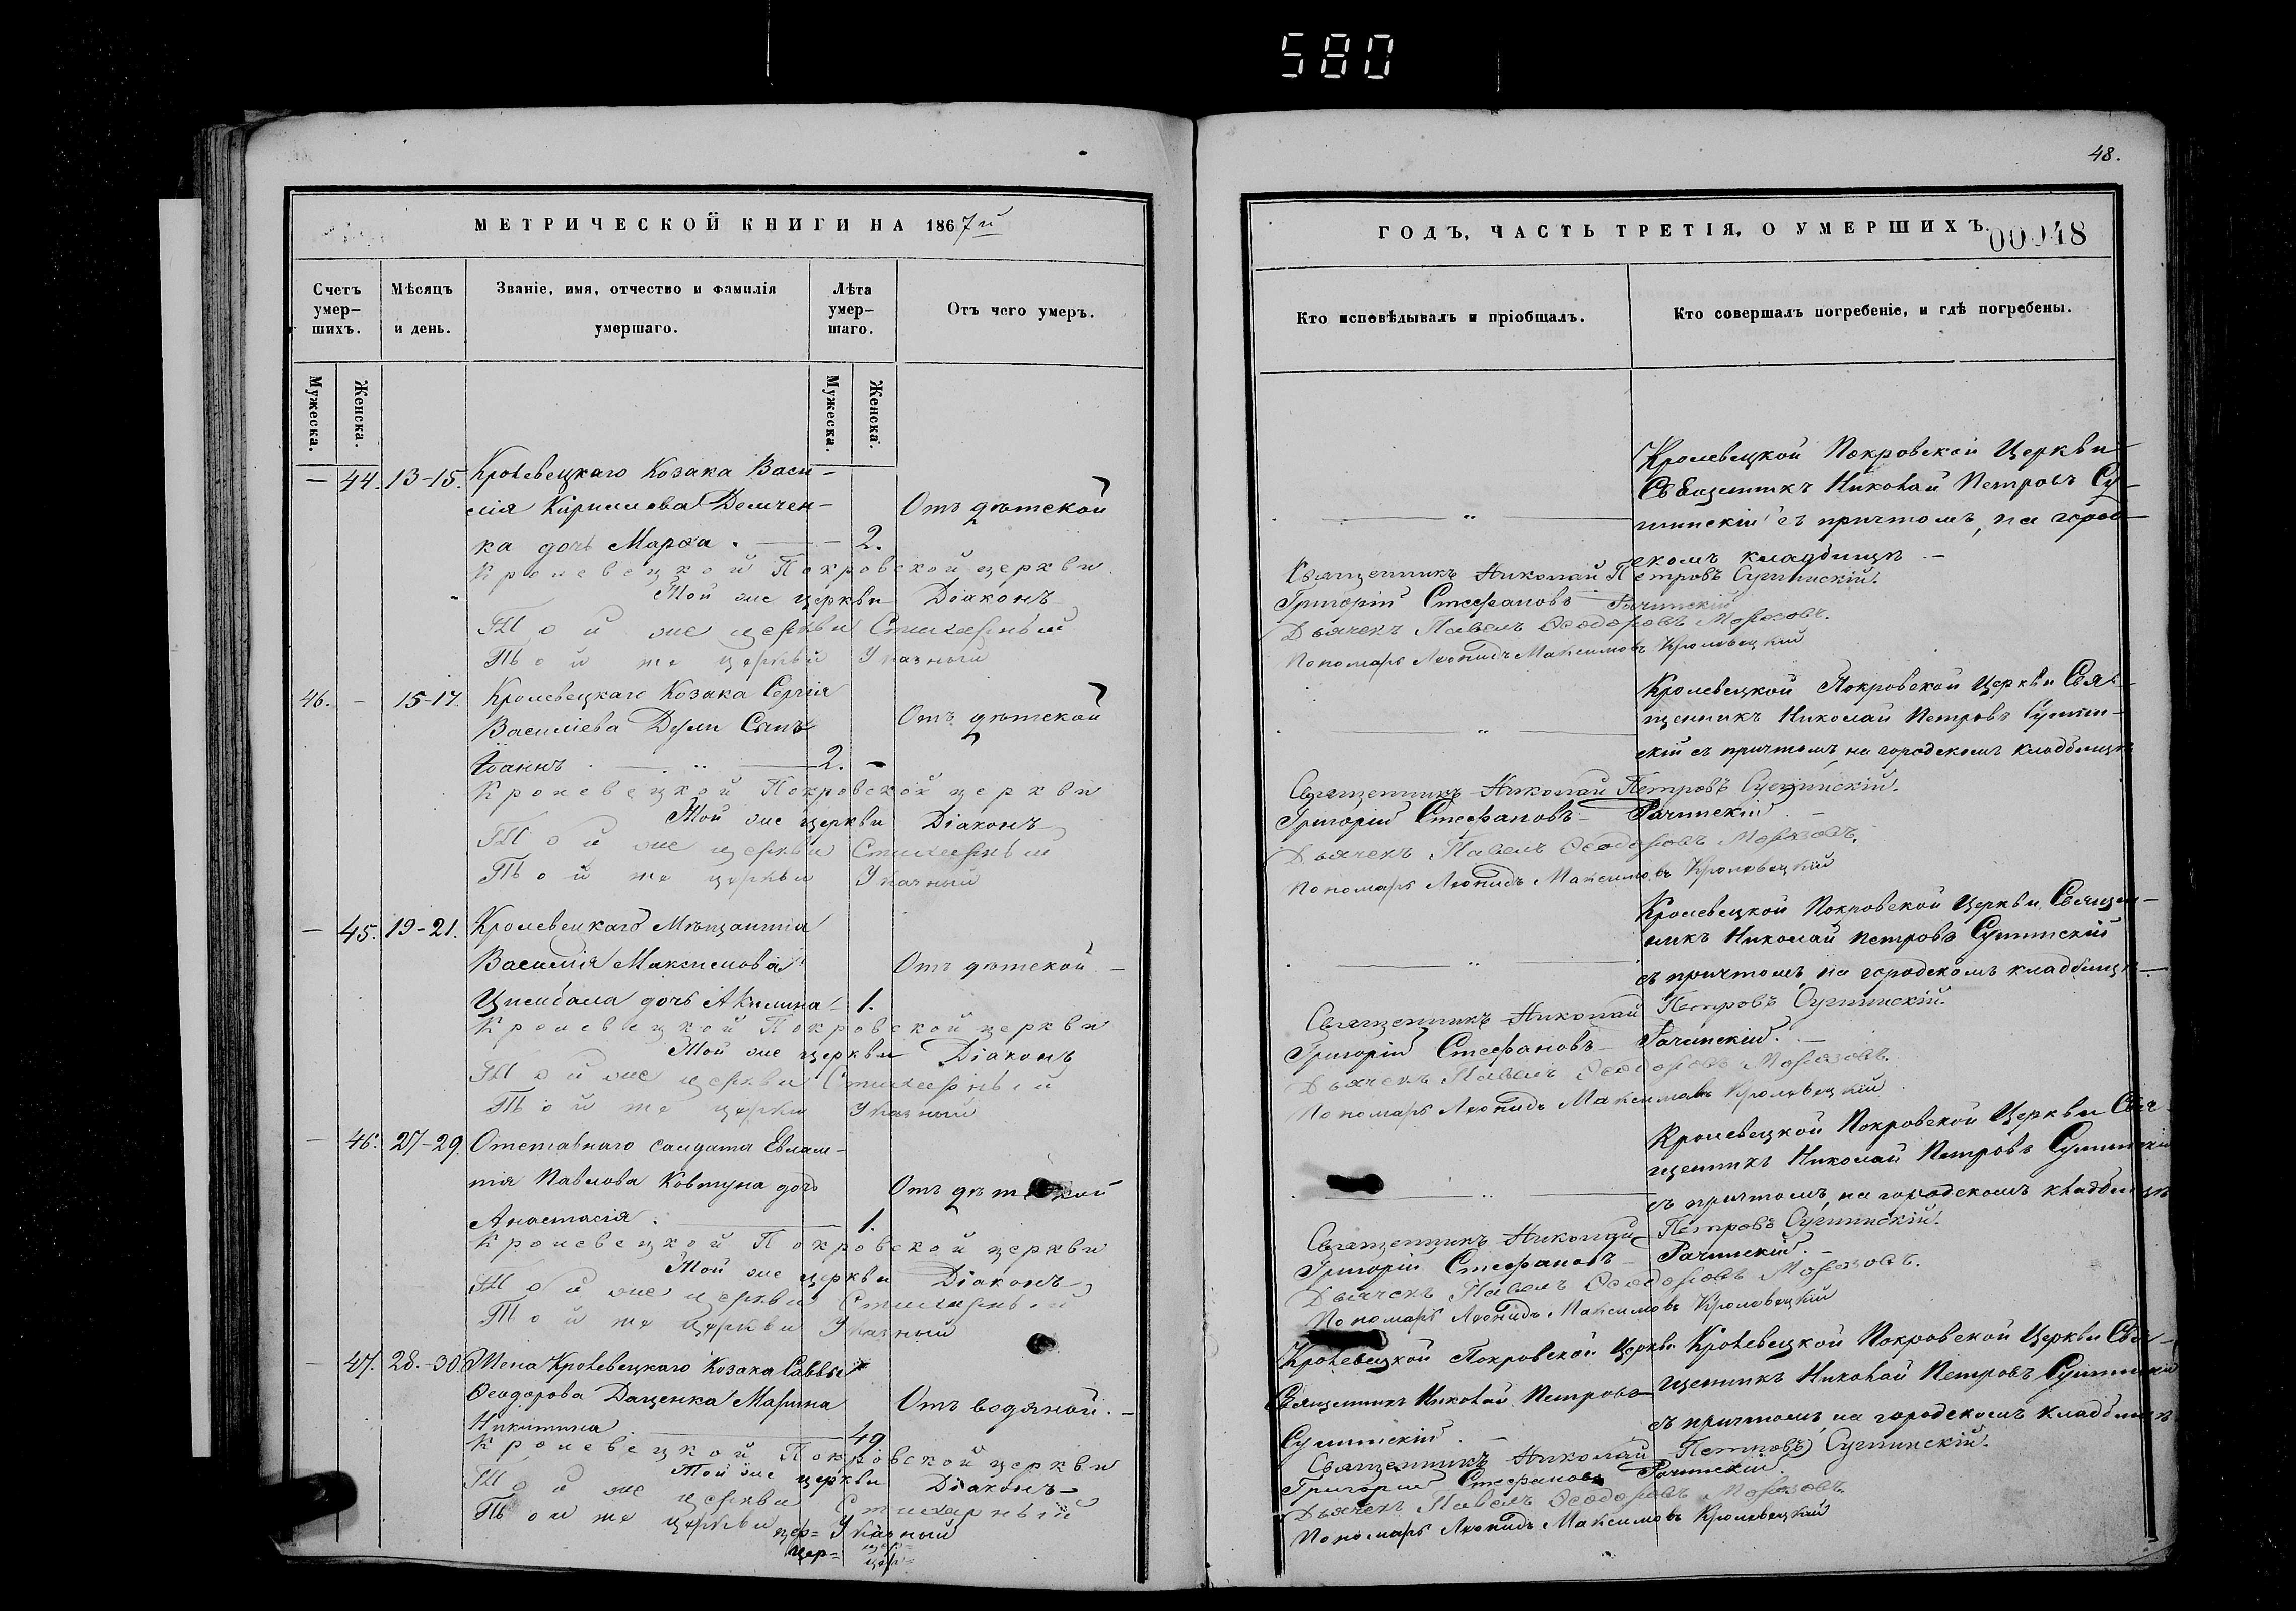 580
48.
МЕТРИЧЕСКОЙ КНИГИ НА 1867й
Счетъ умер-шихъ.
Мѣсяцъ и день.
Званіе, имя, отчество и фамилія умершаго.
Лѣта умер-шаго.
Отъ чего умеръ.
Мужеска.
Женска.
Мужеска.
Женска.
— 44. 13-15. Кролевецкаго Козака Васи-
лія Кириллова Демчен- Отъ дѣтской
ка дочь Марѳа . — 2.
Кролевецкой Покровской церкви
Той же церкви Діаконъ
Той же церкви Стихарный
Той же церкви Указный
46. — 15-17. Кролевецкаго Козака Сергія
Василіева Дули Сынъ Отъ дѣтской
Іоаннъ . — „ — 2. —
Кролевецкой Покровской церкви
Той же церкви Діаконъ
Той же церкви Стихарный
Той же церкви Указный
— 45. 19-21. Кролевецкаго Мѣщанина
Василія Максимова Отъ дѣтской —
дочь Акилина — 1.
Кролевецкой Покровской церкви
Той же церкви Діаконъ
Той же церкви Стихарный
Той же церкви Указный
— 46. 27-29. Отставнаго солдата Евлам-
пія Павлова Ковтуна дочь Отъ дѣтской
Анастасія . — 1.
Кролевецкой Покровской церкви
Той же церкви Діаконъ
Той же церкви Стихарный
Той же церкви Указный
— 47. 28.-30. Жена Кролевецкаго Козака Саввы
Ѳеодорова Даценка Марина Отъ водяной. —
Никитина . — 49
Кролевецкой Покровской церкви
Той же церкви Діаконъ
Той же церкви Стихарный
Той же церкви Указный
цер=
цер=
ГОДЪ, ЧАСТЬ ТРЕТІЯ, О УМЕРШИХЪ.
00048
Кто исповѣдывалъ и пріобщалъ.
Кто совершалъ погребеніе, и гдѣ погребены.
Кролевецкой Покровской Церкви
Священникъ Николай Петровъ Су-
съ причтомъ, на город-
скомъ кладбищѣ —
Священникъ Николай Петровъ
Григорій Стефановъ Рачинскій
Дьячекъ Павелъ Ѳеодоровъ Морозовъ.
Пономарь Леонидъ Максимовъ Кролевецкій
Кролевецкой Покровской Церкви Свя-
щенникъ Николай Петровъ
скій съ причтомъ, на городскомъ кладбищѣ
Священникъ Николай Петровъ
Григорій Стефановъ — Рачинскій —
Дьячекъ Павелъ Ѳеодоровъ Морозовъ.
Пономарь Леонидъ Максимовъ Кролевецкій
Кролевецкой Покровской Церкви Священ-
никъ Николай Петровъ
съ причтомъ, на городскомъ кладбищѣ. —
Священникъ Николай Петровъ
Григорій Стефановъ — Рачинскій. —
Дьячекъ Павелъ Ѳеодоровъ Морозовъ.
Пономарь Леонидъ Максимовъ Кролевецкій
Кролевецкой Покровской Церкви Свя-
щенникъ Николай Петровъ
съ причтомъ, на городскомъ кладбищѣ
Священникъ Николай Петровъ
Григорій Стефановъ — Рачинскій. —
Дьячекъ Павелъ Ѳеодоровъ Морозовъ.
Пономарь Леонидъ Максимовъ Кролевецкій
Кролевецкой Покровской Церкви
Священникъ Николай Петровъ
Кролевецкой Покровской Церкви Свя-
щенникъ Николай Петровъ
съ причтомъ, на городскомъ кладбищѣ
Священникъ Николай Петровъ
Григорій Стефановъ Рачинскій.
Дьячекъ Павелъ Ѳеодоровъ Морозовъ.
Пономарь Леонидъ Максимовъ Кролевецкій